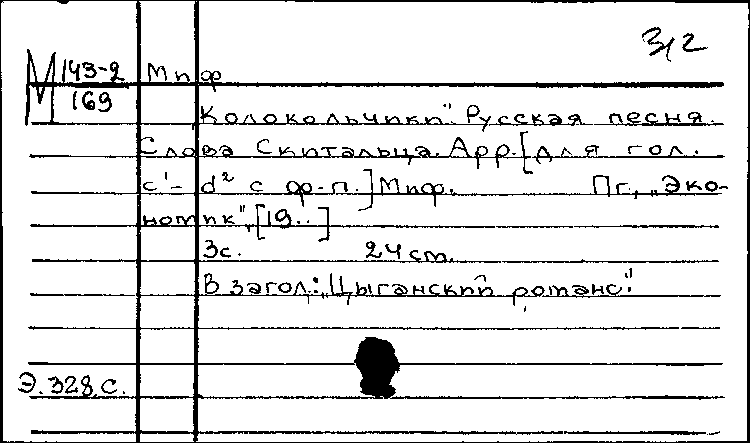 3/2
М 143-2
169
Миф
„Колокольчики". Русская песня.
Слова Скитальца. Арр. [для гол.
c¹ – d² с ф-п.] Миф. Пг., „Эко-
номик", [19..]
3с. 24 см.
В загол.: „Цыганский романс".
Э.328.С.